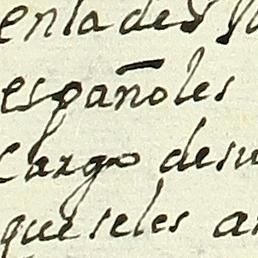 en la de S
españoles
cargo de su
que se les a